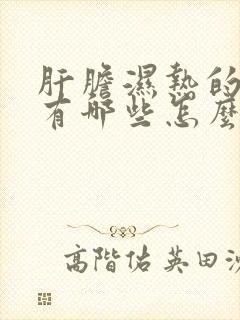 肝膽濕熱的
有哪些怎麼
高階佑英田